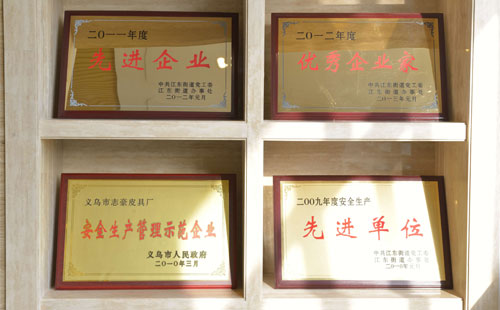 二〇一一年度
先进企业
中共江东街道党工委
江东街道办事处
二〇一二年元月
二〇一二年度
优秀企业家
中共江东街道党工委
江东街道办事处
二〇一三年元月
义乌市志豪皮具厂
安全生产管理示范企业
义乌市人民政府
二〇一〇年三月
二00九年度安全生产
先进单位
中共江东街道党工委
江东街道办事处
二〇一〇年元月